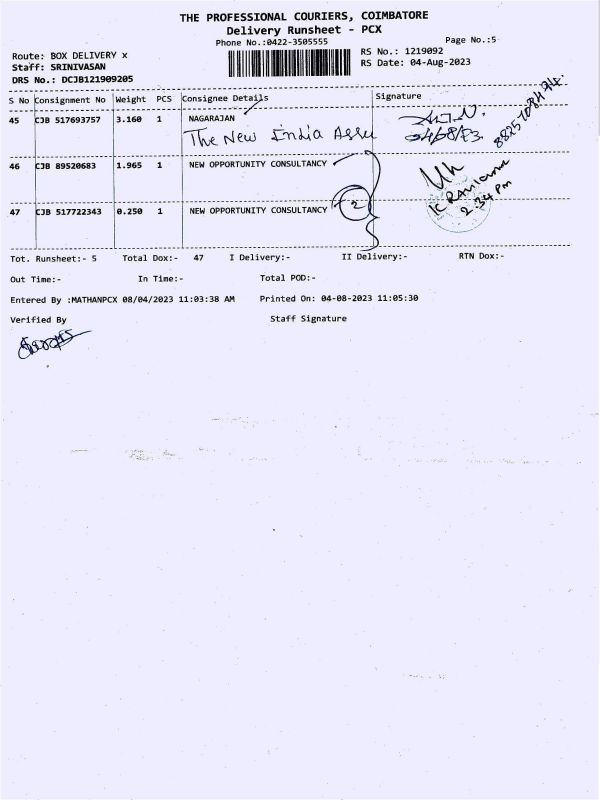 THE PROFESSIONAL COURIERS, COIMBATORE
Delivery Runsheet - PCX
Phone No.:0422-3505555
Page No.:5
Route: BOX DELIVERY x
RS No.: 1219092
Staff: SRINIVASAN
RS Date: 04-Aug-2023
DRS No.: DCJB121909205
S No Consignment No Weight PCS Consignee Details Signature
45 CJB 517693757 3.160 1 NAGARAJAN
The New India Assu
46 CJB 89520683 1.965 1 NEW OPPORTUNITY CONSULTANCY
2.34 Pm
47 CJB 517722343 0.250 1 NEW OPPORTUNITY CONSULTANCY 2
Tot. Runsheet:- 5 Total Dox:- 47 I Delivery:- II Delivery:- RTN Dox:-
Out Time:- In Time:- Total POD:-
Entered By :MATHANPCX 08/04/2023 11:03:38 AM Printed On: 04-08-2023 11:05:30
Verified By Staff Signature